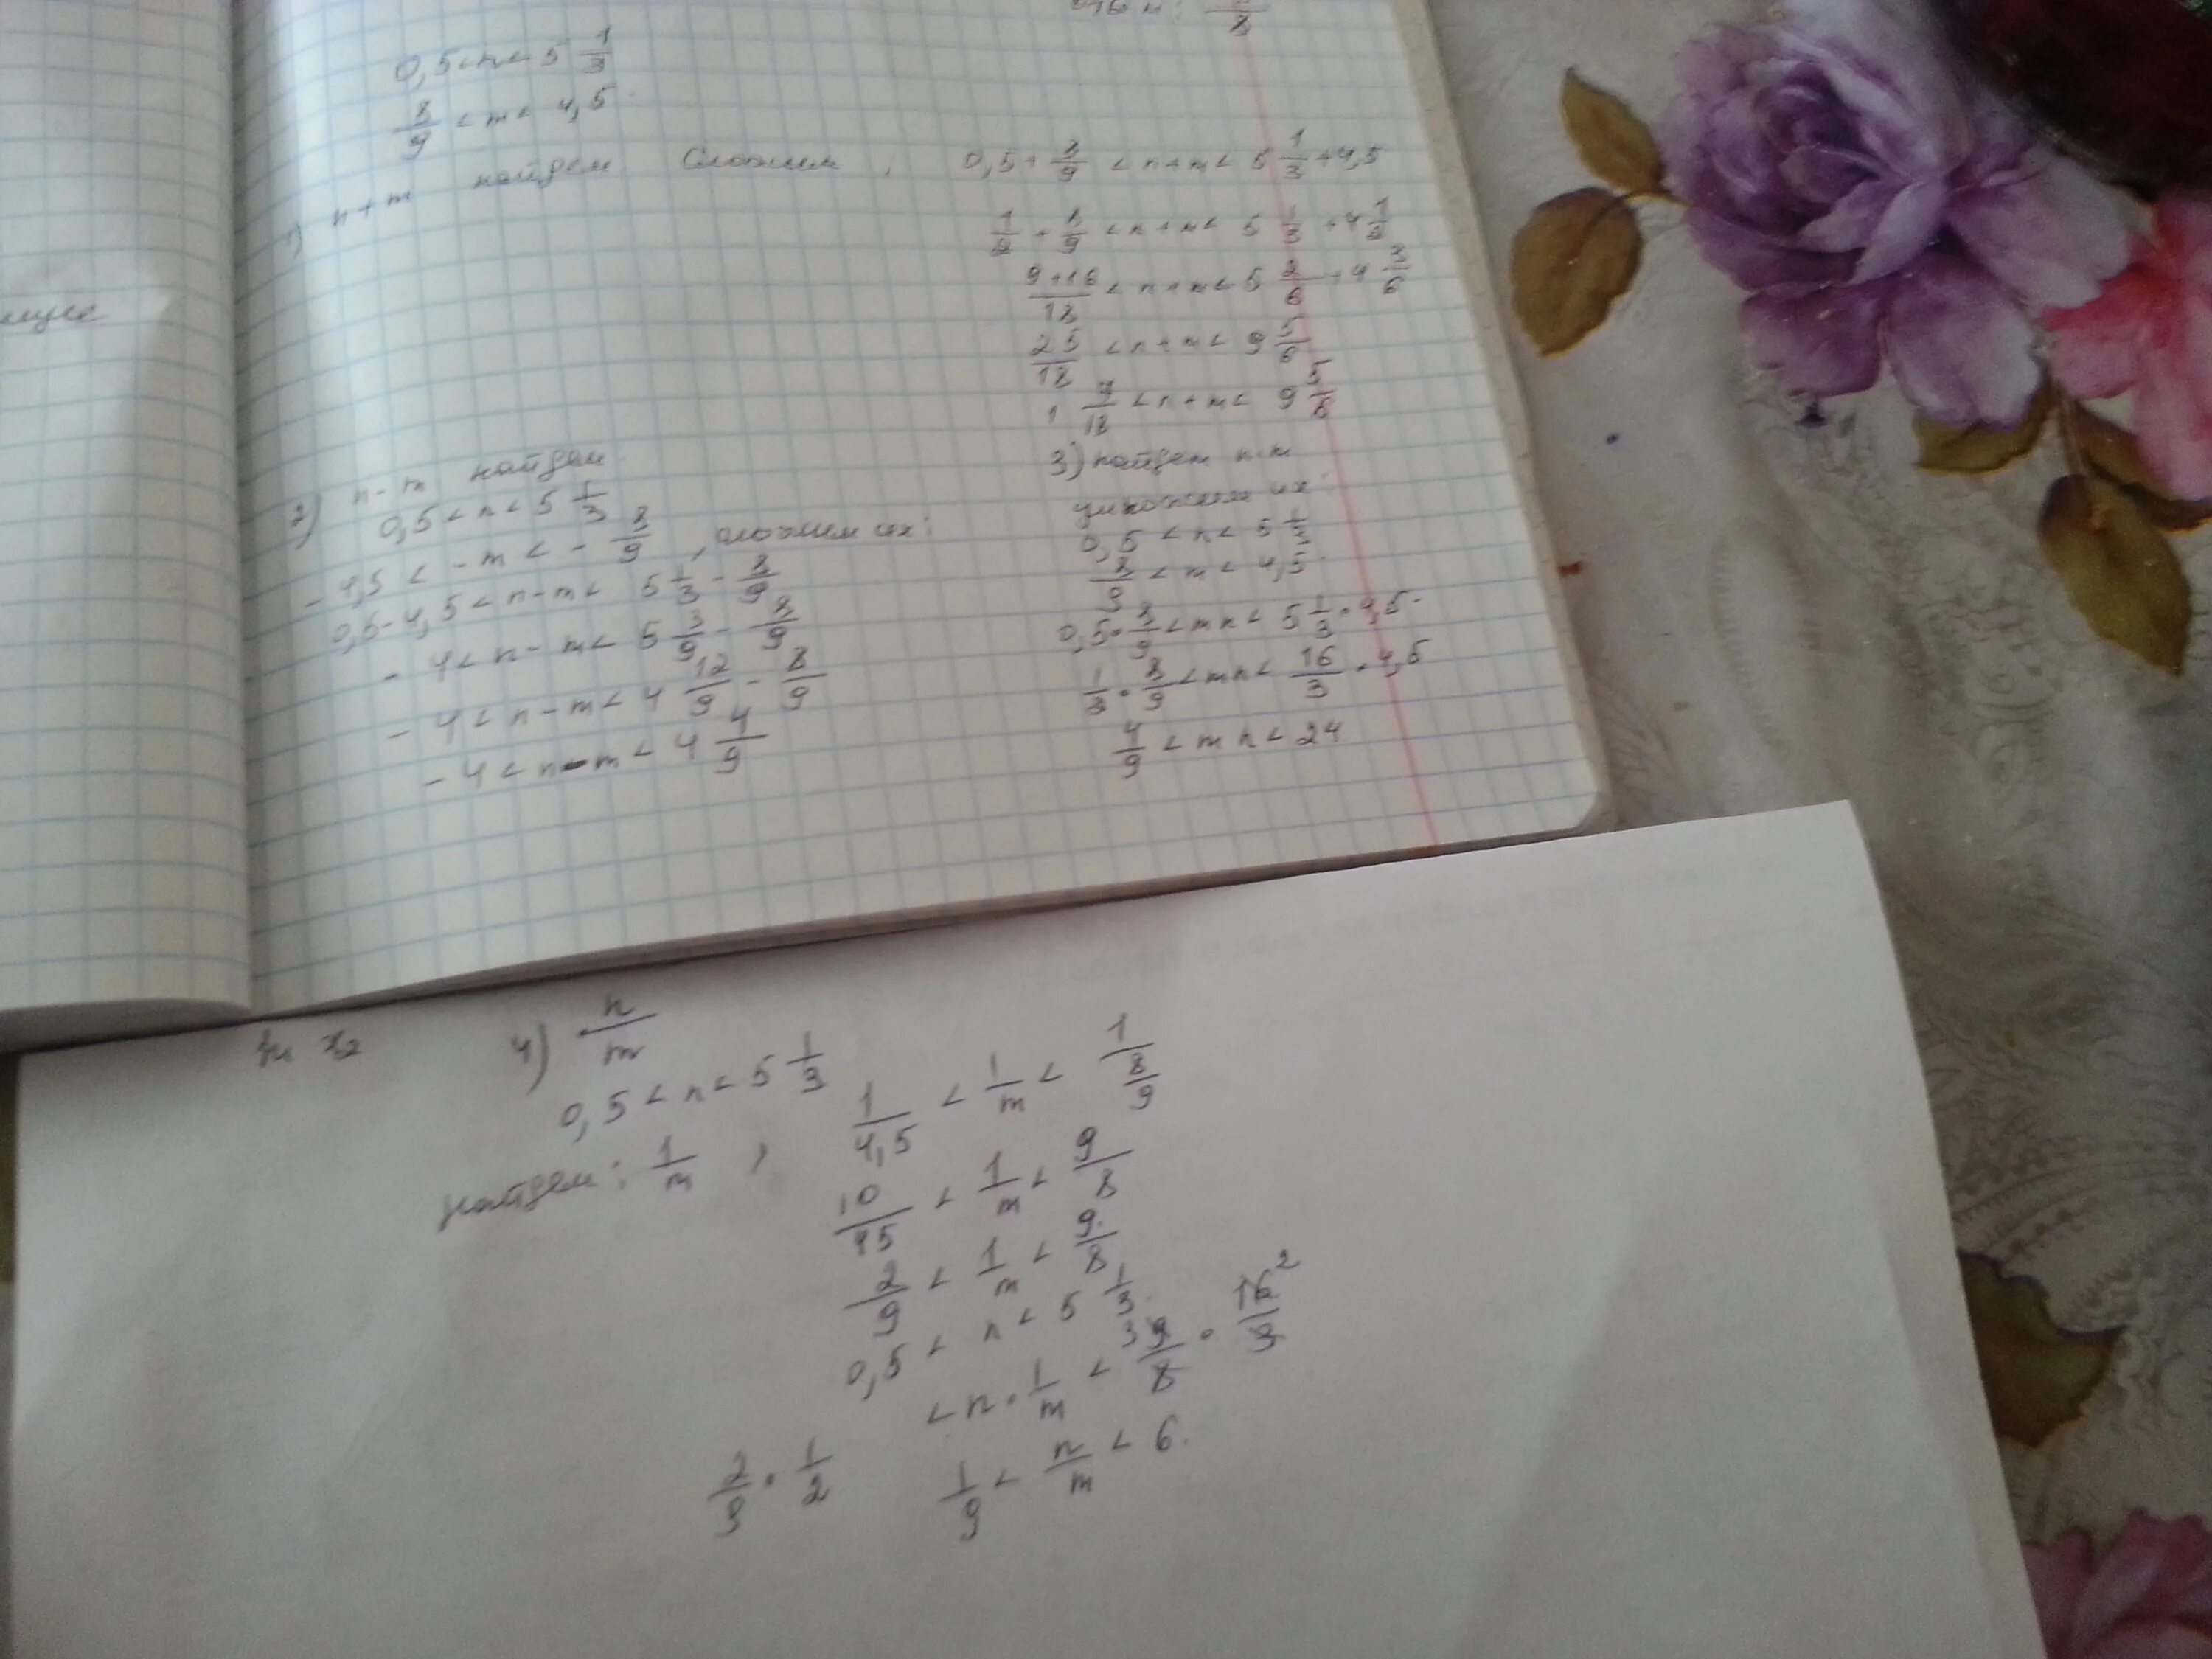 0,5 < n < 5 1/3
8/9 < m < 4,5
1) n + m найдем Сложим ; 0,5 + 8/9 < n + m < 5 1/3 + 4,5
1/2 + 8/9 < n + m < 5 1/3 + 4 1/2
(9 + 16)/18 < n + m < 5 2/6 + 4 3/6
25/18 < n + m < 9 5/6
1 7/18 < n + m < 9 5/6
2) n - m найдем
0,5 < n < 5 1/3
- 4,5 < - m < - 8/9 , сложим их:
0,5 - 4,5 < n - m < 5 1/3 - 8/9
- 4 < n - m < 5 3/9 - 8/9
- 4 < n - m < 4 12/9 - 8/9
- 4 < n - m < 4 4/9
3) найдем n·m
умножим их:
0,5 < n < 5 1/3
8/9 < m < 4,5
0,5 · 8/9 < mn < 5 1/3 · 4,5
1/3 · 8/9 < mn < 16/3 · 4,5
4/9 < mn < 24
x₂ 4) n/m
0,5 < n < 5 1/3
найдем: 1/m , 1/4,5 < 1/m < 1/(8/9)
10/45 < 1/m < 9/8
2/9 < 1/m < 9/8
0,5 < n < 5 1/3
2/9 · 1/2 < n · 1/m < 9/8 · 16/3
1/9 < n/m < 6.